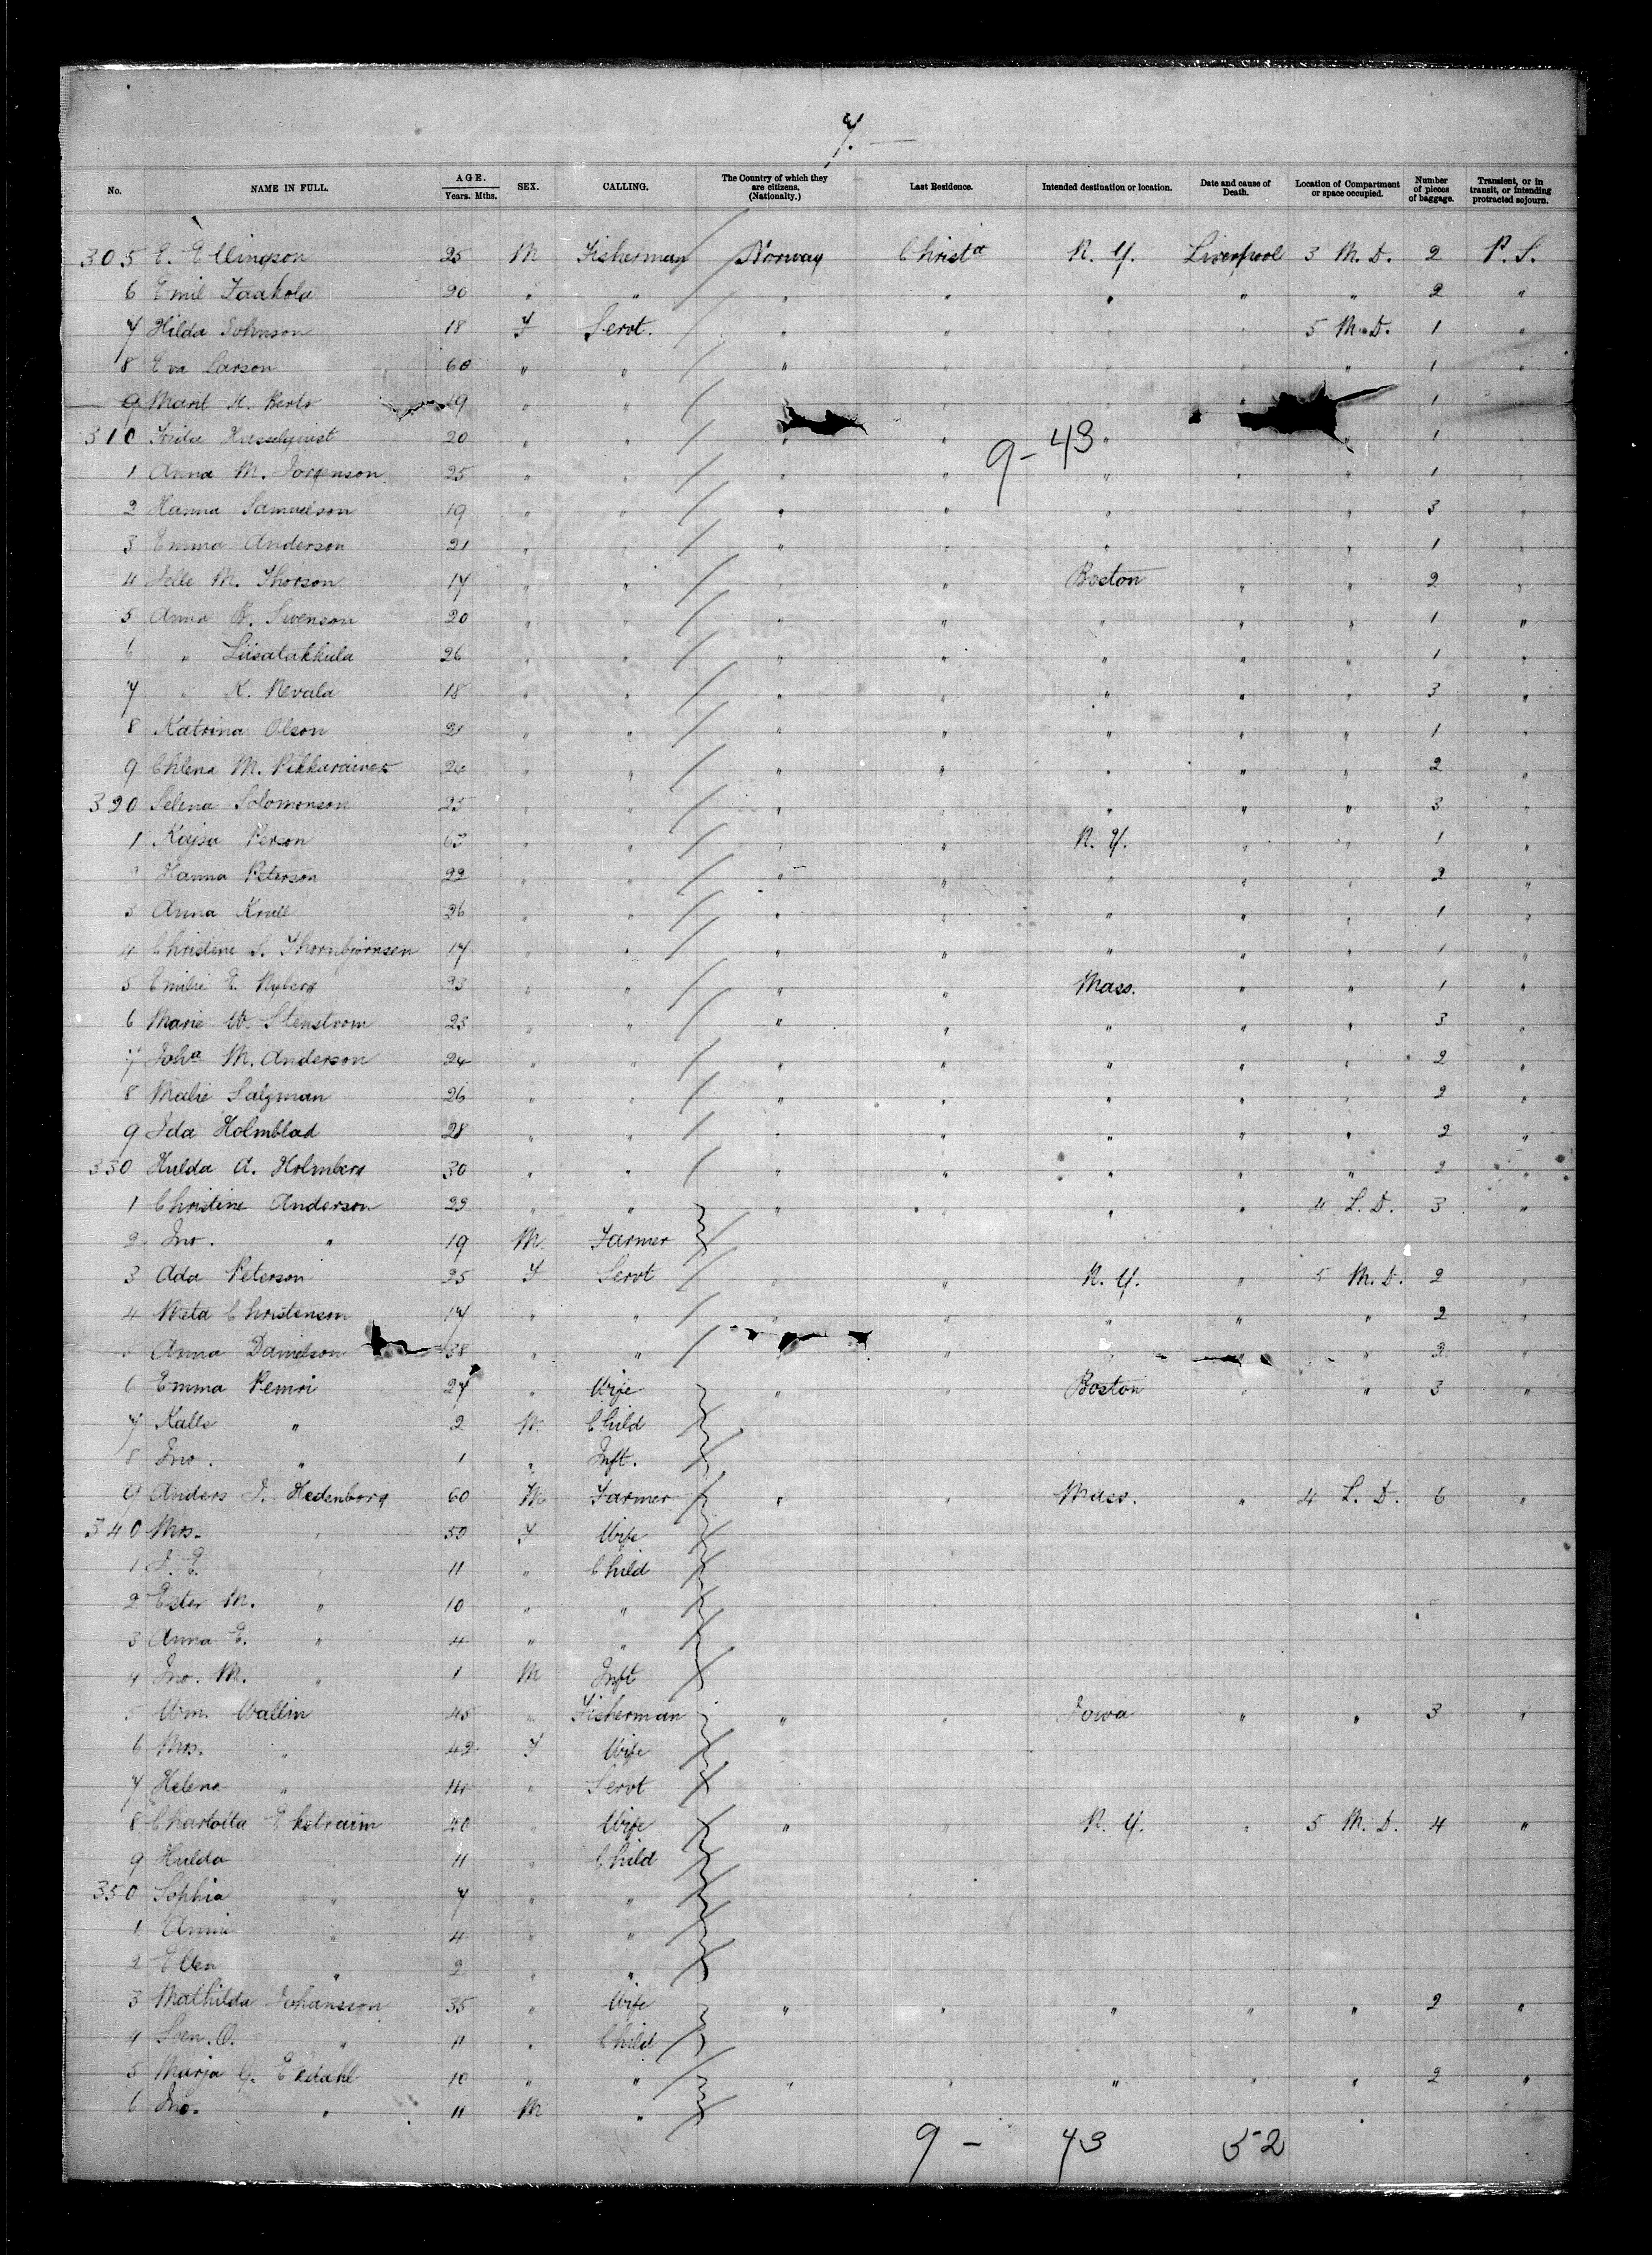 7.
No. NAME IN FULL. AGE. Years. Mths. SEX. CALLING. The Country of which they are citizens. (Nationalty.) Last Residence. Intended destination or location. Date and cause of Death. Location of Compartment or space occupied. Number of pieces of baggage. Transient, or in transit, or intending protracted sojourn.
305 E. Ellingson 25 M Fisherman Norway Christa N. Y. Liverpool 3 M. D. 2 P. S.
6 Emil 20 " " " " " " " 2 "
7 Hilda Johnson 18 F Servt. " " " " 5 M. D. 1 "
8 Eva Larson 60 " " " " " " " 1 "
9 19 " " " 1 "
310 Hasselqvist 20 " " " " " " 1 "
9 - 43
1 Anna M. Jorgenson 25 " " " " " " " 1 "
2 Hanna Samuelson 19 " " " " " " " 3 "
3 Emma Anderson 21 " " " " " " " 1 "
4 M. Thorson 17 " " " " Boston " " 2 "
5 Anna B. Swenson 20 " " " " " " " 1 "
6 " Liisatakkula 26 " " " " " " " 1 "
7 " K. Nevala 18 " " " " " " " 3 "
8 Katrina Olson 21 " " " " " " " 1 "
9 M. 24 " " " " " " " 2 "
320 Selina Solomonson 23 " " " " " " " 3 "
1 Kajsa Person 63 " " " " N. Y. " " 1 "
2 Hanna Peterson 22 " " " " " " " 2 "
3 Anna Knull 26 " " " " " " " 1 "
4 Christine S. Thornbjornsen 17 " " " " " " " 1 "
5 Emilie E. Nyberg 23 " " " " Mass. " " 1 "
6 Marie W. Stenstrom 25 " " " " " " " 3 "
7 Joha M. Anderson 24 " " " " " " " 2 "
8 Malie Salzman 26 " " " " " " " 2 "
9 Ida Holmblad 28 " " " " " " " 2 "
330 Hulda A. Holmberg 30 " " " " " " " 2 "
1 Christine Anderson 22 " " " " " " 4 L. D. 3 "
2 Jno. " 19 M. Farmer
3 Ada Peterson 25 F Servt " " N. Y. " 5 M. D. 2 "
4 Christensen 17 " " " " " " " 2 "
5 Anna Danielson 38 " " " " " 2 "
6 Emma Pemri 27 " Wife " " Boston " " 3 "
7 Kalle " 2 M. Child
8 Jno. " 1 " Inft.
9 Anders J. Hedenborg 60 M Farmer " " Mass. " 4 L. D. 6 "
340 Mrs. " 50 F Wife
1 J. E. " 11 " Child
2 Ester M. " 10 " "
3 Anna E. " 4 " "
4 Jno. M. " 1 M Inft
5 Wm. Wallin 45 " Fisherman " " Iowa " " 3 "
6 Mrs. " 42 F Wife
7 Helena " 14 " Servt
8 Charlotta 40 " Wife " " N. Y. " 5 M. D. 4 "
9 Hulda " 11 " Child
350 Sophia " 7 " "
1 Annie " 4 " "
2 Ellen " 2 " "
3 Mathilda Johansson 35 " Wife " " " " " 2 "
4 Sven. O. " 11 " Child
5 Marja G. Ekdahl 10 " " " " " " " 2 "
6 Jno. " 11 M "
9 - 43 52